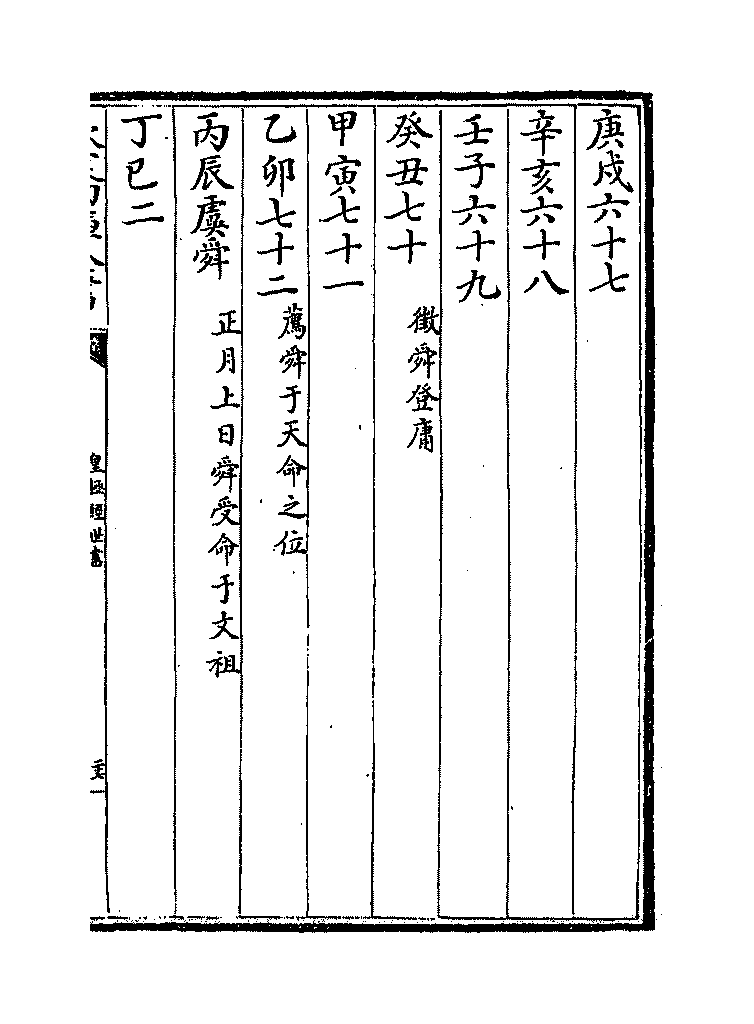 庚戌六十七
辛亥六十八
壬子六十九
癸丑七十
徵舜登庸
甲寅七十一
乙卯七十二
薦舜于天命之位
丙辰虞舜
正月上日舜受命于文祖
丁巳二
皇極經世書